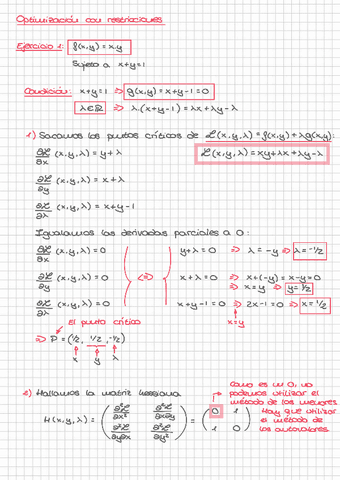 Optimización con restricciones
Ejercicio 1: f(x,y)=x.y
Sujeto a x+y=1
Condición: x+y=1 => g(x,y)=x+y-1=0
λ∈ℝ => λ.(x+y-1)=λx+λy-λ
1) Sacamos los puntos críticos de ℒ(x,y,λ)=f(x,y)+λg(x,y):
∂ℒ/∂x (x,y,λ)=y+λ ℒ(x,y,λ)=xy+λx+λy-λ
∂ℒ/∂y (x,y,λ)=x+λ
∂ℒ/∂λ (x,y,λ)=x+y-1
Igualamos las derivadas parciales a 0:
∂ℒ/∂x (x,y,λ)=0 y+λ=0 => λ=-y => λ=-1/2
∂ℒ/∂y (x,y,λ)=0 <=> x+λ=0 => x+(-y)=x-y=0
=> x=y => y=1/2
∂ℒ/∂λ (x,y,λ)=0 x+y-1=0 => 2x-1=0 => x=1/2
x=y
El punto crítico
=> P=(1/2, 1/2, -1/2)
x y λ
2) Hallamos la matriz hessiana
Como es un 0, no
podemos utilizar el
método de los menores
H(x,y,λ)= (∂²ℒ/∂x² ∂²ℒ/∂x∂y) = (0 1) Hay que utilizar
(∂²ℒ/∂y∂x ∂²ℒ/∂y²) (1 0) el método de
los autovalores